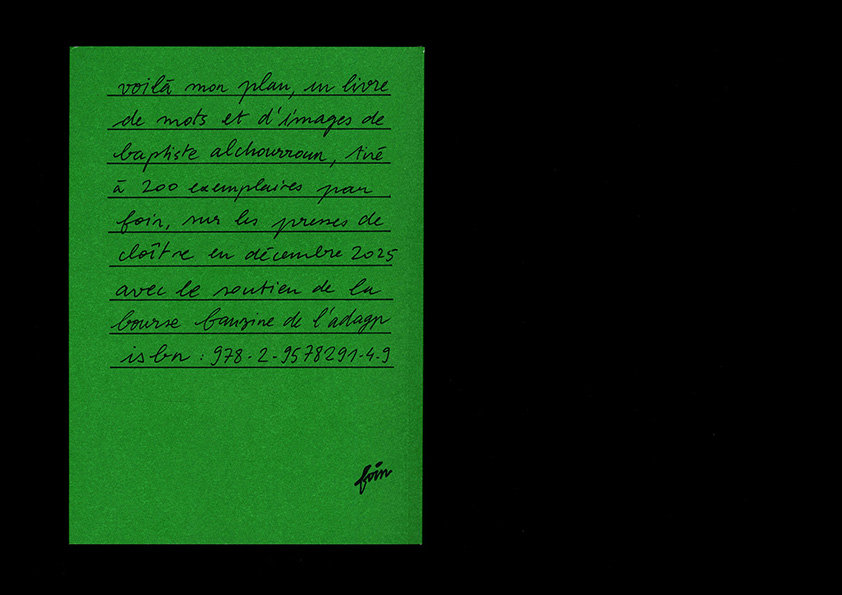 voilà mon plan, un livre
de mots et d'images de
baptiste alchourroun, tiré
à 200 exemplaires par
foin, sur les presses de
cloître en décembre 2025
avec le soutien de la
bourse fanzine de l'adagp
isbn : 978-2-9578291-4-9
foin